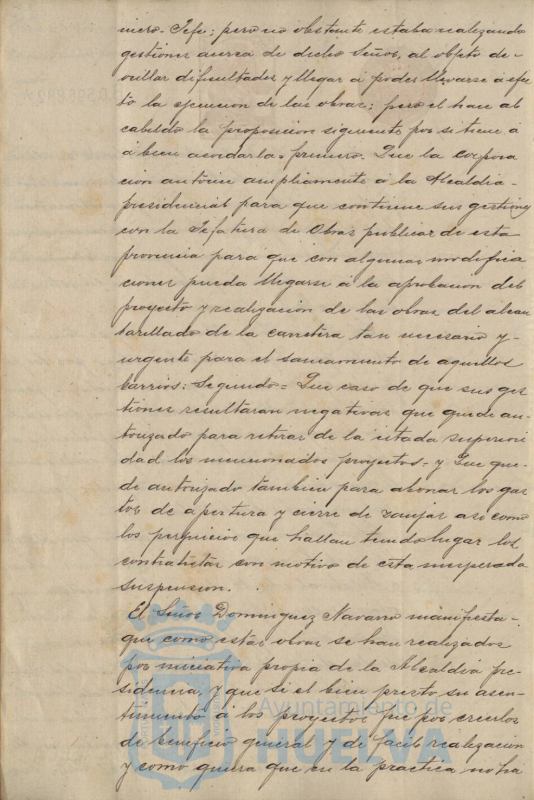 niero-Jefe; pero no obstante estaba realizando
gestiones acerca de dicho Señor, al objeto de
orillar dificultades y llegar á poder llevarse á efec
to la ejecucion de las obras; pero el hace al
cabildo la proposicion siguiente por si tiene á
á bien acordarla = primero. Que la corpora
cion autorice ampliamente á la Alcaldia-
presidencial para que continue sus gestiones
con la Jefatura de Obras publicas de esta
provincia para que con algunas modifica
ciones pueda llegarse á la aprobacion del
proyecto y realizacion de las obras del alcan
tarillado de la carretera tan necesario y-
urgente para el saneamiento de aquellos
barrios: Segundo = Que caso de que sus ges
tiones resultaran negativas que quede au-
torizado para retirar de la citada superiori
dad los mencionados proyectos = y Que que-
de autorizado tambien para abonar los gas
tos de apertura y cierre de zanjas asi como
los perjuicios que hallan tenido lugar los
contratistas con motivo de esta inesperada
suspension.
El Señor Dominguez Navarro manifesta-
que como estas obras se han realizados
por iniciativa propia de la Alcaldia pre-
sidencia, y que si el bien presto su asen-
timiento á los proyectos fue por creerlos
de beneficio general y de facil realizacion
y como quiera que en la practica no ha
Ayuntamiento de
HUELVA